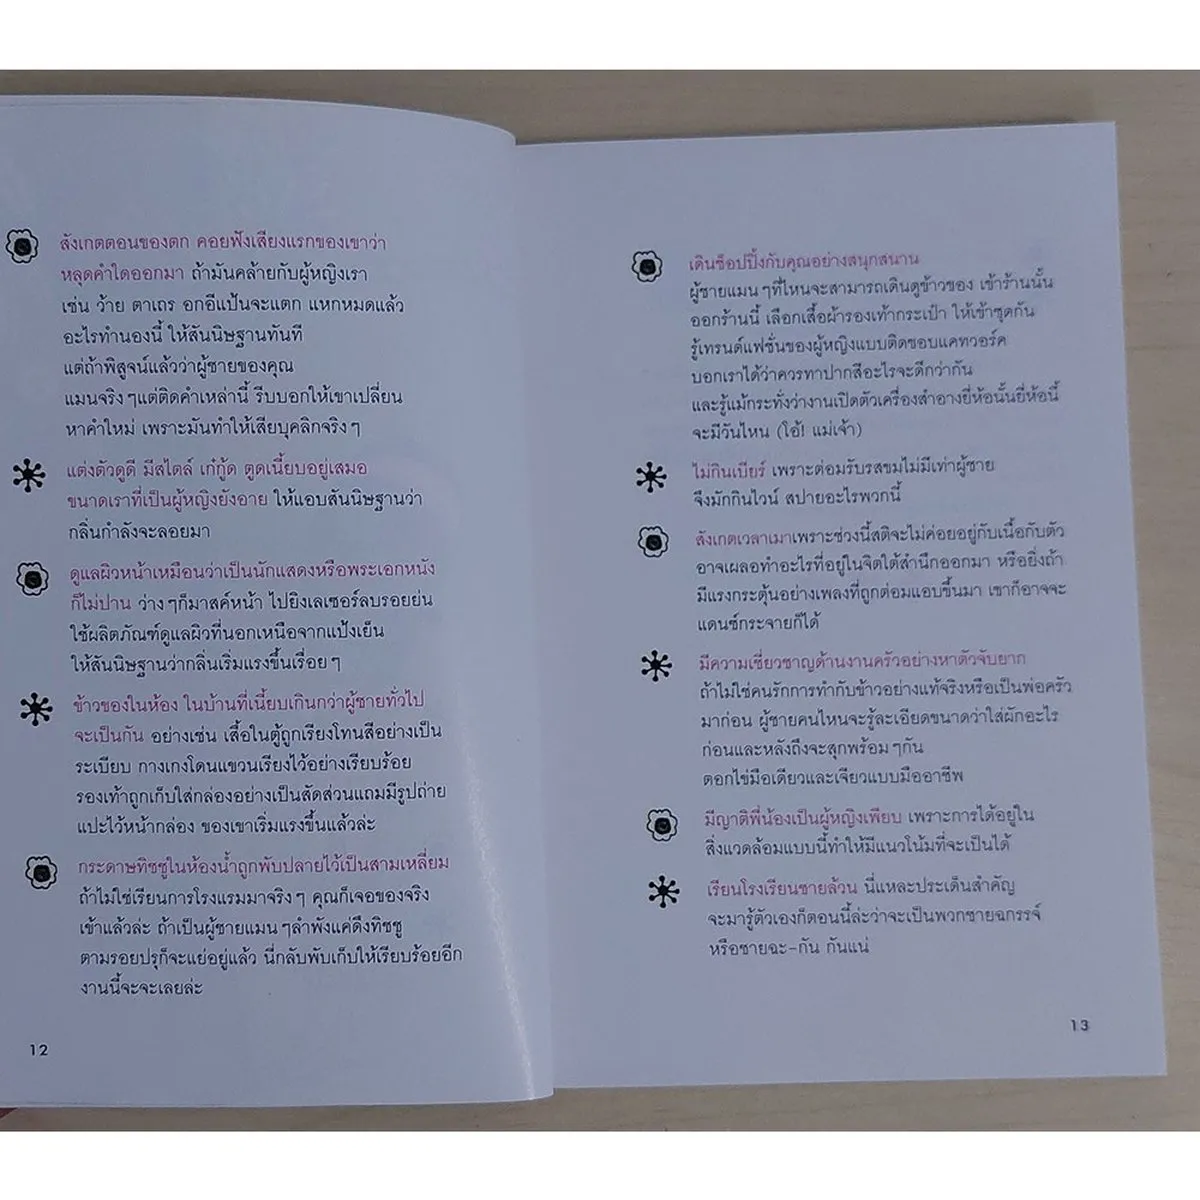 สังเกตตอนของตก คอยฟังเสียงแรกของเขาว่า
หลุดคำใดออกมา ถ้ามันคล้ายกับผู้หญิงเรา
เช่น ว้าย ตาเถร อกอีแป้นจะแตก แหกหมดแล้ว
อะไรทำนองนี้ ให้สันนิษฐานทันที
แต่ถ้าพิสูจน์แล้วว่าผู้ชายของคุณ
แมนจริงๆแต่ติดคำเหล่านี้ รีบบอกให้เขาเปลี่ยน
หาคำใหม่ เพราะมันทำให้เสียบุคลิกจริงๆ
แต่งตัวดูดี มีสไตล์ เก๋กู้ด ตูดเนี้ยบอยู่เสมอ
ขนาดเราที่เป็นผู้หญิงยังอาย ให้แอบสันนิษฐานว่า
กลิ่นกำลังจะลอยมา
ดูแลผิวหน้าเหมือนว่าเป็นนักแสดงหรือพระเอกหนัง
ก็ไม่ปาน ว่างๆก็มาสค์หน้า ไปยิงเลเซอร์ลบรอยย่น
ใช้ผลิตภัณฑ์ดูแลผิวที่นอกเหนือจากแป้งเย็น
ให้สันนิษฐานว่ากลิ่นเริ่มแรงขึ้นเรื่อยๆ
ข้าวของในห้อง ในบ้านที่เนี้ยบเกินกว่าผู้ชายทั่วไป
จะเป็นกัน อย่างเช่น เสื้อในตู้ถูกเรียงโทนสีอย่างเป็น
ระเบียบ กางเกงโดนแขวนเรียงไว้อย่างเรียบร้อย
รองเท้าถูกเก็บใส่กล่องอย่างเป็นสัดส่วนแถมมีรูปถ่าย
แปะไว้หน้ากล่อง ของเขาเริ่มแรงขึ้นแล้วล่ะ
กระดาษทิชชูในห้องน้ำถูกพับปลายไว้เป็นสามเหลี่ยม
ถ้าไม่ใช่เรียนการโรงแรมมาจริงๆ คุณก็เจอของจริง
เข้าแล้วล่ะ ถ้าเป็นผู้ชายแมนๆลำพังแค่ดึงทิชชู
ตามรอยปรุก็จะแย่อยู่แล้ว นี่กลับพับเก็บให้เรียบร้อยอีก
งานนี้จะจะเลยล่ะ
12
เดินช็อปปิ้งกับคุณอย่างสนุกสนาน
ผู้ชายแมนๆที่ไหนจะสามารถเดินดูข้าวของ เข้าร้านนั้น
ออกร้านนี้ เลือกเสื้อผ้ารองเท้ากระเป๋า ให้เข้าชุดกัน
รู้เทรนด์แฟชั่นของผู้หญิงแบบติดขอบแคทวอร์ค
บอกเราได้ว่าควรทาปากสีอะไรจะดีกว่ากัน
และรู้แม้กระทั่งว่างานเปิดตัวเครื่องสำอางยี่ห้อนั้นยี่ห้อนี้
จะมีวันไหน (โอ้! แม่เจ้า)
ไม่กินเบียร์ เพราะต่อมรับรสขมไม่มีเท่าผู้ชาย
จึงมักกินไวน์ สปายอะไรพวกนี้
สังเกตเวลาเมาเพราะช่วงนี้สติจะไม่ค่อยอยู่กับเนื้อกับตัว
อาจเผลอทำอะไรที่อยู่ในจิตใต้สำนึกออกมา หรือยิ่งถ้า
มีแรงกระตุ้นอย่างเพลงที่ถูกต่อมแอบขึ้นมา เขาก็อาจจะ
แดนซ์กระจายก็ได้
มีความเชี่ยวชาญด้านงานครัวอย่างหาตัวจับยาก
ถ้าไม่ใช่คนรักการทำกับข้าวอย่างแท้จริงหรือเป็นพ่อครัว
มาก่อน ผู้ชายคนไหนจะรู้ละเอียดขนาดว่าใส่ผักอะไร
ก่อนและหลังถึงจะสุกพร้อมๆกัน
ตอกไข่มือเดียวและเจียวแบบมืออาชีพ
มีญาติพี่น้องเป็นผู้หญิงเพียบ เพราะการได้อยู่ใน
สิ่งแวดล้อมแบบนี้ทำให้มีแนวโน้มที่จะเป็นได้
เรียนโรงเรียนชายล้วน นี่แหละประเด็นสำคัญ
จะมารู้ตัวเองก็ตอนนี้ล่ะว่าจะเป็นพวกชายฉกรรจ์
หรือชายฉะ-กัน กันแน่
13